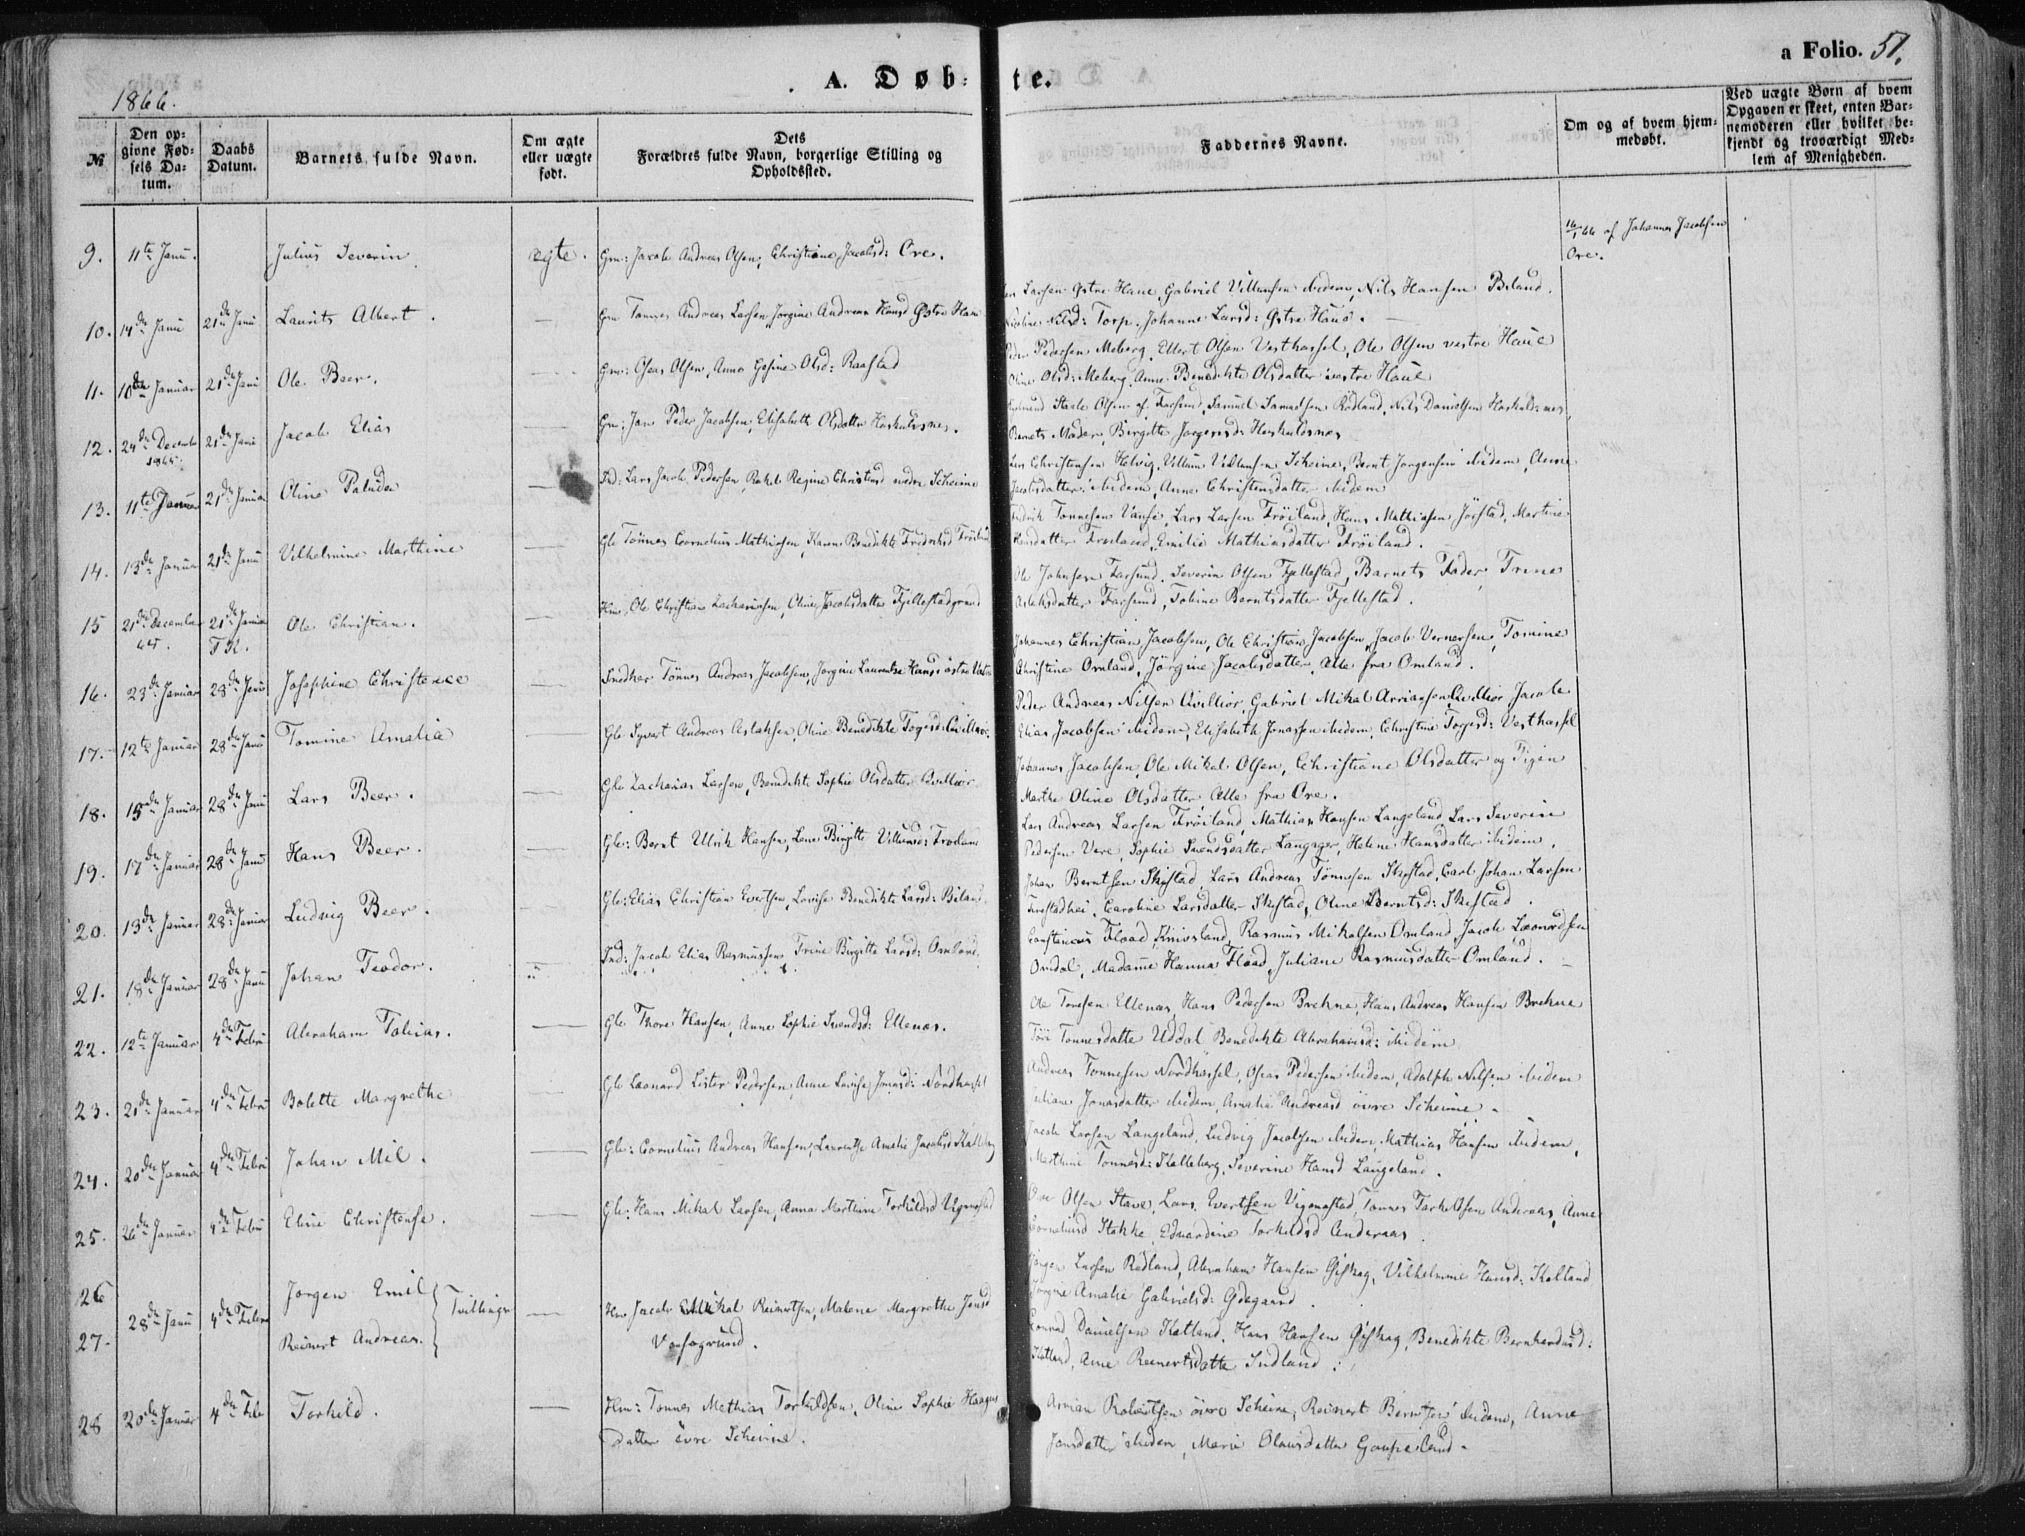 1866.
A. Døbte.
a Folio. 51.
№
Den opgivne Fødsels Datum.
Daabs Datum.
Barnets fulde Navn.
Om ægte eller uægte født.
Dets Forældres fulde Navn, borgerlige Stilling og Opholdssted.
Faddernes Navne.
Om og af hvem hjemmedøbt.
Ved uægte Børn af hvem Opgaven er skeet, enten Barnemoderen eller hvilket bekjendt og troværdigt Medlem af Menigheden.
9. 11te Janu. Julius Severin ægte. Gm: Jacob Andreas Olsen, Christiane Jacobsd: Ore.
16/1 66 af Johannes Jacobsen
Ore.
10. 14de Janu 21de Janu Laurits Albert. — Gm Tønnes Andreas Larsen, Jørgine Andrea Hansd Østre Haue
Larsen Østre Haue, Gabriel Villumsen ibidem, Nils Hansen Biland.
Nilsd: Torp. Johanne Larsd: Østre Haue.
11. 10de Januar 21de Janu Ole Beer. — Gm: Oseas Olsen, Anna Gesine Olsd: Raastad
Peder Pedersen Meberg, Ellert Olsen Vesthassel, Ole Olsen vestre Haue
Oline Olsd: Meberg, Anne Benedikte Olsdatter vestre Haue
12. 24de December 1865. 21de Janu Jacob Elias — Gm: Jan Peder Jacobsen, Elisabeth Olsdatter Huskuldsnes.
Olsen af Farsund, Samuel Samuelsen Rødland, Nils Danielsen Huskuldsnes,
Barnets Moder, Birgitte Jørgensd: Huskuldsnes
13. 11te Januar 21de Januar Oline Paludea — Ind: Lars Jacob Pedersen, Rakel Regine Christensd nedre Scheime
Lars Christensen Helvig, Villum Villumsen Scheime, Bernt Jørgensen ibidem, Anne
Jacobsdatter ibidem, Anne Christensdatter ibidem
14. 13de Januar 21de Janu Vilhelmine Marthine — Gb Tønnes Cornelius Mathiasen, Karen Benedikte Fredriksd Frøiland
Fredrik Tønnesen Vanse, Lars Larsen Frøiland, Hans Mathiasen Jørstad, Martine
Hansdatter Frøiland, Emilie Mathiasdatter Frøiland.
15 21de December 65. 21de Januar F.K. Ole Christian. — Hm Ole Christian Zachariasen, Oline Jacobsdatter Fjellestadgrund
Ole Johnsen Farsund, Severin Olsen Fjellestad, Barnets Fader, Trine
Aslaksdatter Farsund, Tobine Berntsdatter Fjellestad.
16. 23de Januar 28de Janu Josephine Christence — Tønnes Andreas Jacobsen, Jørgine Laurentse Hansd østre
Johannes Christian Jacobsen, Ole Christian Jacobsen, Jacob Vernersen, Tomine
Christine Omland, Jørgine Jacobsdatter, Alle fra Omland.
17. 12te Januar 28de Janu Tomine Amalia — Gb Syvert Andreas Aslaksen, Oline Benedikte Tøgesd: Qvillior.
Peder Andreas Nilsen Qvillior, Gabriel Mikal Arriansen Qvillior, Jacob
Elias Jacobsen ibidem, Elisabeth Jonassen ibidem, Christine Tøgesd: Vesthassel
18. 15de Januar 28de Janu Lars Beer. — Gb Zacharias Larsen, Benedikte Sophie Olsdatter Qvillior
Johannes Jacobsen, Ole Mikal Olsen, Christiane Olsdatter og Pigen
Marthe Oline Olsdatter, Alle fra Ore.
19. 17de Januar 28de Janu Hans Beer. — Gb: Bernt Ulrik Hansen, Lene Birgitte Villumsd: Frøiland
Lars Andreas Larsen Frøiland, Mathias Hansen Langeland, Lars Severin
Pedersen Vere, Sophie Svendsdatter Langager, Helene Hansdatter ibidem.
20. 13de Januar 28de Januar Ludvig Beer. — Gb: Elias Christian Evertsen, Lovise Benedikte Larsd: Biland
Johan Berntsen Skistad, Lars Andreas Tønnesen Skistad, Carl Johan Larsen
Caroline Larsdatter Skistad, Oline Berntsd: Skistad.
21. 18de Januar 28de Janu Johan Teodor. — Ind: Jacob Elias Rasmussen Trine Birgitte Larsd: Omland.
Constancius Fload, Rasmus Mikalsen Omland, Jacob Leonardsen
Omdal, Madame Hanna Fload, Juliane Rasmusdatter Omland.
22. 12te Januar 4de Febru Abraham Tobias. — Gb Thore Hansen, Anne Sophie Svendsd: Ellenes.
Ole Toresen Ellenes, Hans Pedersen Brekne, Hans Andreas Hansen Brekne
Tønnesdatte Uddal, Benedikte Abrahamsd: ibidem
23. 21de Januar 4de Febru Bolette Margrethe — Gb Leonard Lister Pedersen, Anne Lovise Jonasd: Nordhassel
Andreas Tønnesen Nordhassel, Oseas Pedersen ibidem, Adolph Nilsen ibidem
Juliane Jonasdatter ibidem, Amalie Andreasd øvre Scheime.
24. 20de Januar 4de Febru Johan Mil. — Gb: Cornelius Andreas Hansen, Laurentse Amalie Jacobsd Kalleberg
Jacob Larsen Langeland, Ludvig Jacobsen ibidem, Mathias Hansen ibidem,
Marthine Tønnesd: Kalleberg, Severine Hansd Langeland.
25. 26de Januar 4de Febru Eline Christense. — Gb: Hans Mikal Larsen, Anna Martine Torkildsd Vigmostad
Olsen Stave, Lars Evertsen Vigmostad, Tønnes Torkildsen Anderaas, Anne
Corneliusd Stokke, Eduardine Torkildsd Anderaas.
26 27. 28de Janu 4de Febru Jørgen Emil Reinert Andreas. } Tvillinger — Hm Jacob Mikal Reinertsen, Malene Margrethe Jonsd
Vansøgrund.
Jørgen Larsen Rødland, Abraham Hansen Giskag, Vilhelmine Hansd: Kalland
Jørgine Amalie Gabrielsd: Ødegaard.
Conrad Danielsen Katland, Hans Hansen Giskag, Benedikte Bernhardsd:
Katland, Ane Reinertsdatte Indland.
28 20de Januar 4de Feb Torkild. — Hm: Tønnes Mathias Torkildsen, Oline Sophie Haagens
datter øvre Scheime.
Arrian Robertsen øvre Scheime, Reinert Berntsen ibidem, Anne
Jansdatter ibidem, Marie Olausdatter Gaupeland.